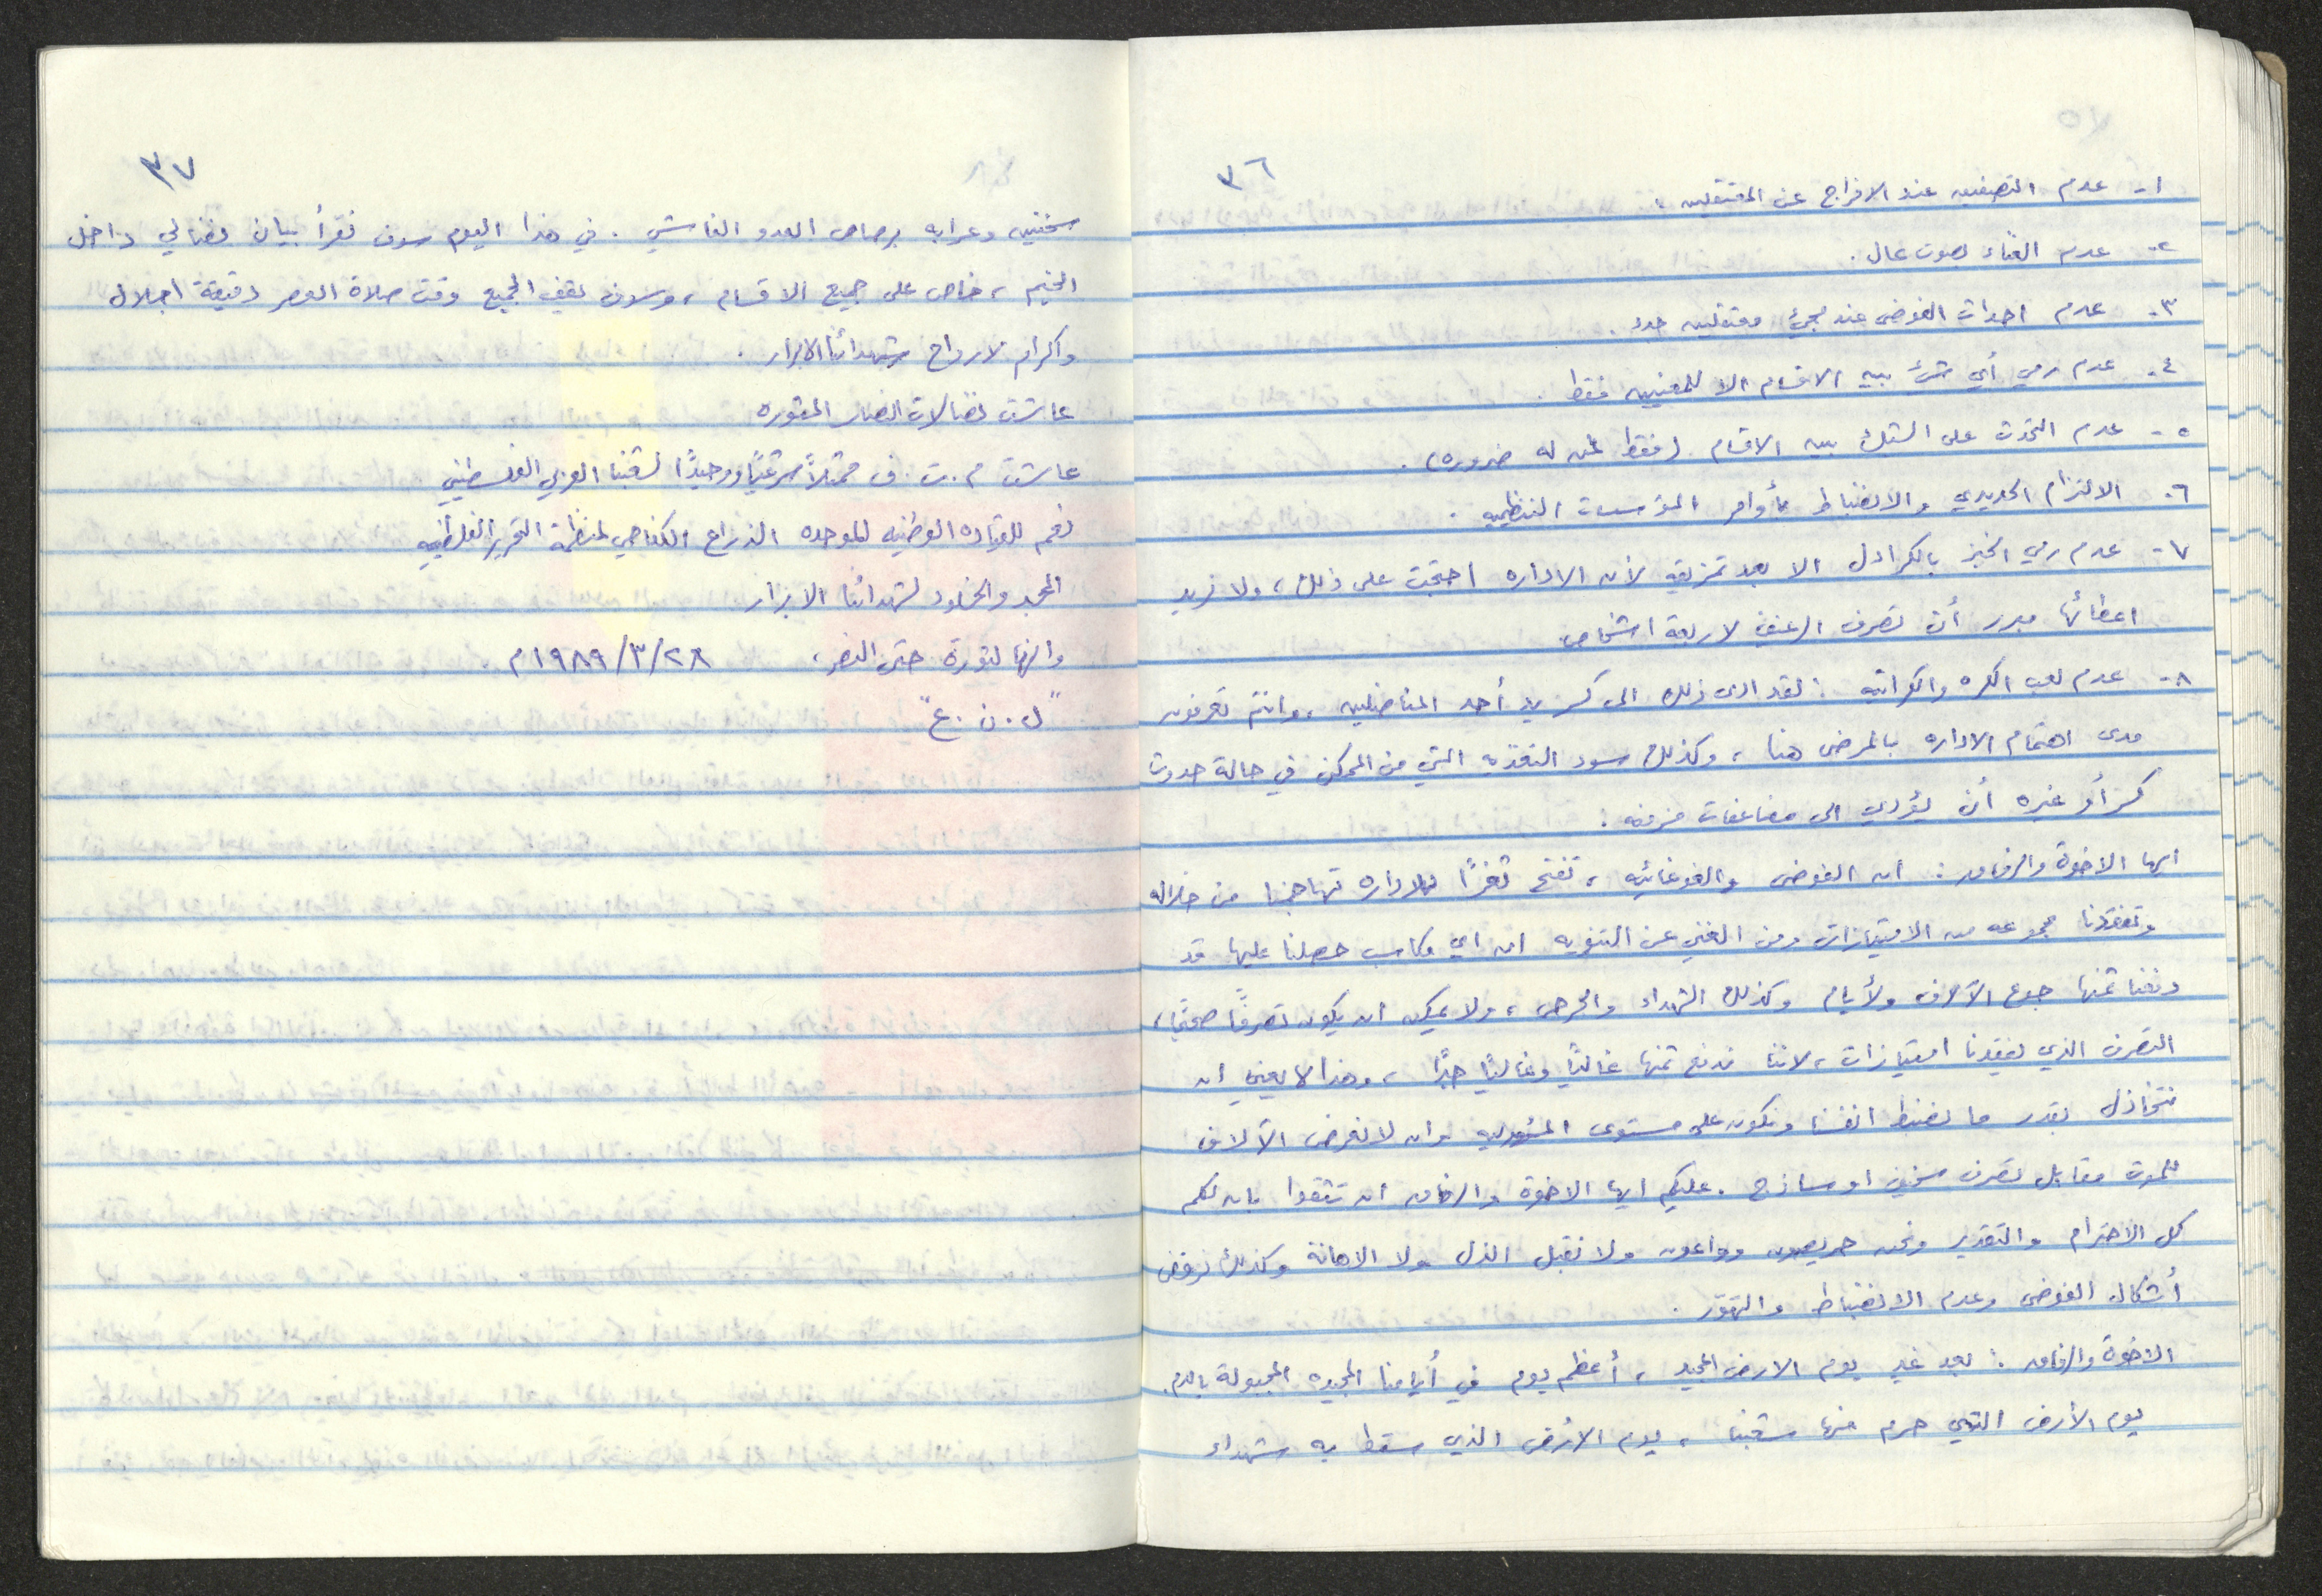 ٣٦
١- عدم التصفيق عند الافراج عن المعتقلين .
٢- عدم الغناء بصوت عال .
٣- عدم احداث الفوضى عند مجيئ معتقلين جدد .
٤- عدم رمي أي شيئ بين الاقسام الا للمعنيين فقط .
٥- عدم التحدث على الشلك بين الاقسام (فقط لمن له ضروره) .
٦- الالتزام الحديدي والانضباط بأوامر المؤسسات التنظيميه .
٧- عدم رمي الخبز بالكرادل الا بعد تمزيقه لأن الاداره احتجت على ذلك ، ولا نريد
اعطائها مبرر أن تصرف الرغيف لاربعة اشخاص
٨- عدم لعب الكره والكراتيه : لقد ادى ذلك الى كسر يد أحد المناضلين ، وانتم تعرفون
مدى اهتمام الاداره بالمرضى هنا ، وكذلك سوء التغذيه التي من الممكن في حالة حدوث
كسر أو غيره أن يؤدي الى مضاعفات مزمنه :
ايها الاخوة والرفاق : ان الفوضى والغوغائيه ، تفتح ثغرًا للاداره تهاجمنا من خلاله
وتفقدنا مجموعه من الامتيازات ومن الغني عن التنويه ان اي مكاسب حصلنا عليها قد
دفعنا ثمنها جوع الآلاف ولأيام وكذلك الشهداء والجرحى ، ولا يمكن ان يكون تصرفًا صحيًا ،
التصرف الذي يفقدنا امتيازات ، لاننا ندفع ثمنها غاليًا وغاليًا جدًا ، وهذا لا يعني ان
نتخاذل بقدر ما نضبط انفسنا ونكون على مستوى المسؤوليه وان لا نعرض الآلاف
للموت مقابل تصرف سخيف او ساذج . عليكم ايها الاخوة والرفاق ان تثقوا بان لكم
كل الاحترام والتقدير ونحن حريصون وواعون ولا نقبل الذل ولا الاهانة وكذلك نرفض
أشكال الفوضى وعدم الانضباط والتهور .
الاخوة والرفاق : بعد غدٍ يوم الارض المجيد ، أعظم يوم في أيامنا المجيده المجبولة بالدم .
يوم الأرض التي حرم منها شعبنا ، يوم الارض الذي سقط به شهداء
٣٧
سخنين وعرابه برصاص العدو الفاشي . في هذا اليوم سوف نقرأ بيان نضالي داخل
الخيم ، خاص على جميع الاقسام ، وسوف يقف الجميع وقت صلاة العصر دقيقة اجلال
واكرام لارواح شهدائنا الابرار .
عاشت نضالات انصار المقوره
عاشت م . ت . ف ممثلاً شرعيًا ووحيدًا لشعبنا العربي الفلسطيني
نعم للقياده الوطنيه الموحده الذراع الكفاحي لمنظمة التحرير الفلسطينيه
المجد والخلود لشهدائنا الابرار
وانها لثورة حتى النصر ، ٢٨/٣/١٩٨٩م .
"ل . ن . ع"